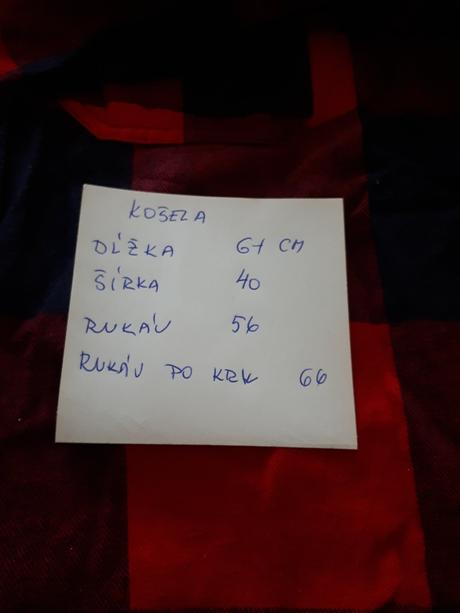 KOŠEĽA
DĹŽKA 61 CM
ŠÍRKA 40
RUKÁV 56
RUKÁV PO KRK 66